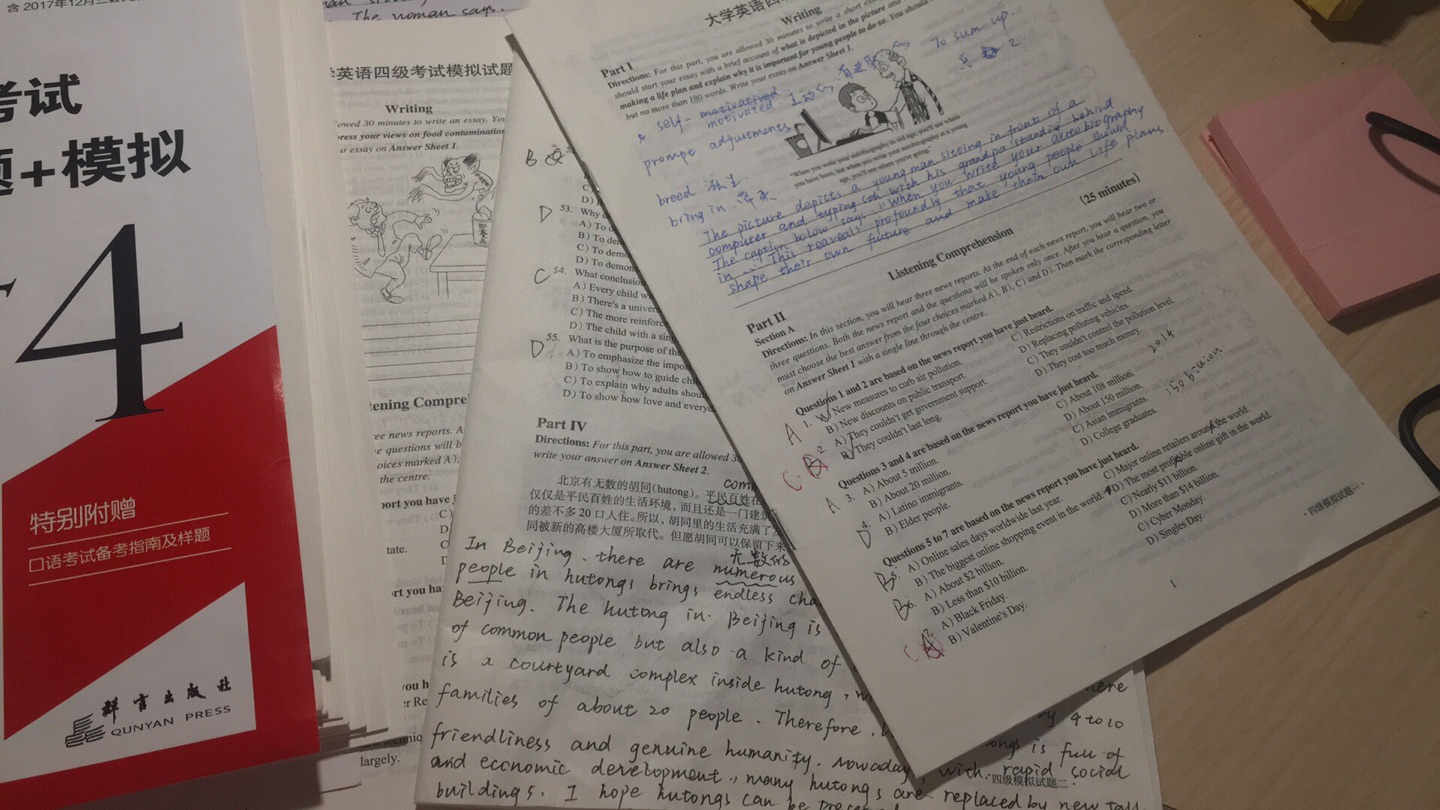 含2017年12月
考试
题+模拟
4
特别附赠
口语考试备考指南及样题
群言出版社
QUNYAN PRESS
The woman says.
学英语四级考试模拟试题
Writing
owed 30 minutes to write an essay. You
press your views on food contamination
ur essay on Answer Sheet 1.
tening Compre
ree news reports. A
he questions will b
oices marked A),
the centre.
port you have j
tate.
largely.
B
C
D)
D 53. Why
A) To d
B) To de
C) To demo
D) To demon
C 54. What conclusion
A) Every child w
B) There's a univer
C) The more reinforc
D) The child with a sing
D 55. What is the purpose of the
A) To emphasize the impor
B) To show how to guide chil
C) To explain why adults shoul
D) To show how love and everyd
Part IV
Directions: For this part, you are allowed 30
write your answer on Answer Sheet 2.
com
北京有无数的胡同(hutong)。平民百姓在
仅仅是平民百姓的生活环境,而且还是一门建筑
的差不多20口人住。所以,胡同里的生活充满了
同被新的高楼大厦所取代。但愿胡同可以保留下来
无数的
In Beijing, there are numerous
people in hutongs brings endless cha
Beijing. The hutong in Beijing is
of common people but also a kind of
is a courtyard complex inside hutong, w
here
families of about 20 people. Therefore,
by 4 to 10
friendliness and genuine humanity. Nowaday
ongs is full of
and economic development, many hutongs are
, with rapid social
buildings. I hope hutongs can be preser
replaced by new tall
四级模拟试题二
大学英语四
Writing
Part I
Directions: For this part, you are allowed 30 minutes to write a short
should start your essay with a brief account of what is depicted in the picture and
making a life plan and explain why it is important for young people to do so. You should
but no more than 180 words. Write your essay on Answer Sheet 1.
To sum up.
总 2
self-motivatied 主动的 有进取
motivated
prompt adjustments
breed 孳生
bring in 带来
"When you write your autobiography in old age, you'll see where
you have been, but when you write your autobiography at a young
age, you'll see where you're going."
The picture depicts a young man sitting in front of a
computer and typing sth with his grandpa standing behind
The caption below say. "When you write your autobiography
in ... This reveals profoundly that young people should
shape their own future and make their own life plans.
Part II
Listening Comprehension
(25 minutes)
Section A
Directions: In this section, you will hear three news reports. At the end of each news report, you will hear two or
three questions. Both the news report and the questions will be spoken only once. After you hear a question, you
must choose the best answer from the four choices marked A), B), C) and D). Then mark the corresponding letter
on Answer Sheet 1 with a single line through the centre.
Questions 1 and 2 are based on the news report you have just heard.
A 1. A) New measures to curb air pollution.
C) Restrictions on traffic and speed.
B) New discounts on public transport.
D) Replacing polluting vehicles.
C B 2. A) They couldn't get government support.
C) They couldn't control the pollution level.
B) They couldn't last long.
D) They cost too much money.
Questions 3 and 4 are based on the news report you have just heard.
2014
A 3. A) About 5 million.
C) About 108 million.
B) About 20 million.
D) About 150 million.
150 billion.
D 4. A) Latino immigrants.
C) Asian immigrants.
B) Elder people.
D) College graduates.
Questions 5 to 7 are based on the news report you have just heard.
B 5. A) Online sales days worldwide last year.
C) Major online retailers around the world.
B) The biggest online shopping event in the world.
D) The most profitable online gift in the world.
B 6. A) About $2 billion.
C) Nearly $11 billion.
B) Less than $10 billion.
D) More than $14 billion.
C 7. A) Black Friday.
C) Cyber Monday.
B) Valentine's Day.
D) Singles Day.
1
·四级模拟试题二·